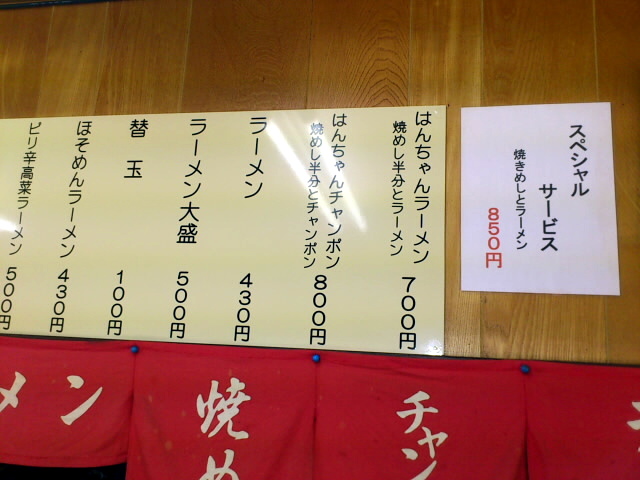 スペシャル
サービス
焼きめしとラーメン
850円
はんちゃんラーメン
焼めし半分とラーメン
700円
はんちゃんチャンポン
焼めし半分とチャンポン
800円
ラーメン
430円
ラーメン大盛
500円
替玉
100円
ほそめんラーメン
430円
ピリ辛高菜ラーメン
500円
チャン
焼め
メン